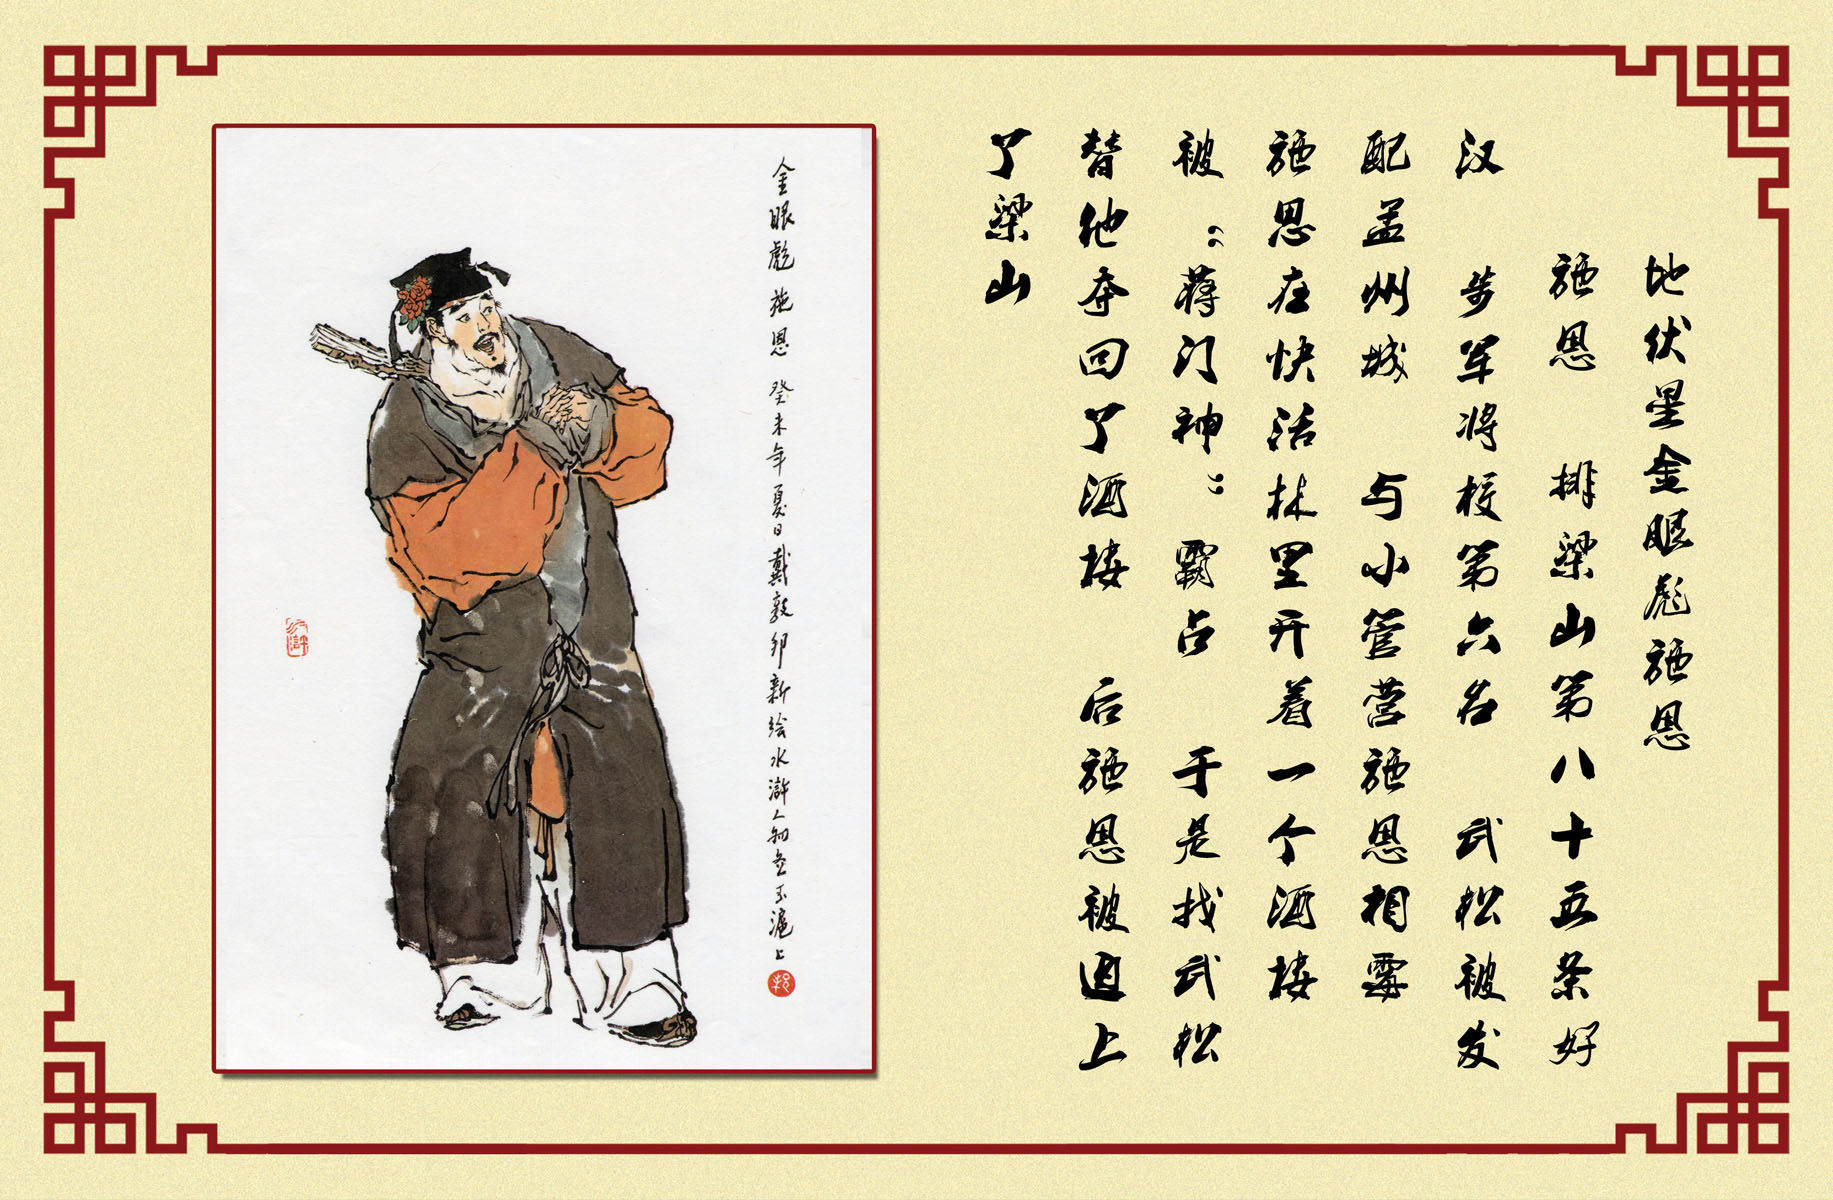 地伏星金眼彪施恩
施恩 排梁山第八十五条好
汉 步军将校第六名 武松被发
配孟州城 与小管营施恩相
施恩在快活林里开着一个酒楼
被“蒋门神”霸占 于是找武松
替他夺回了酒楼 后施恩被迫上
了梁山
金眼彪施恩 癸未年夏日戴敦邦新绘水滸人物于滬上